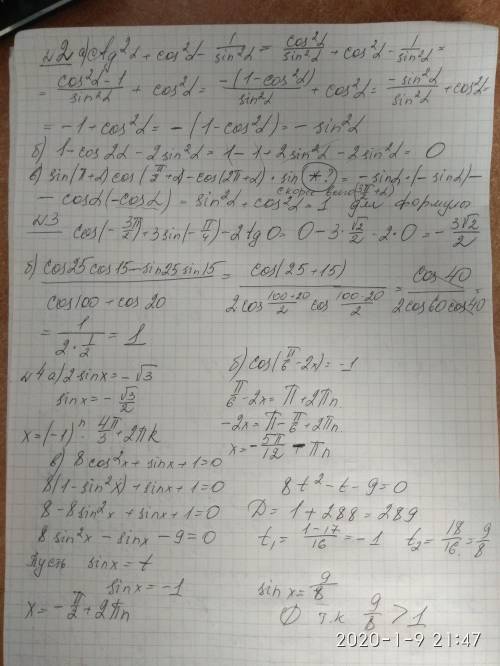 №2 а) ctg²α + cos²α - 1/sin²α = cos²α/sin²α + cos²α - 1/sin²α =
= (cos²α - 1)/sin²α + cos²α = -(1-cos²α)/sin²α + cos²α = -sin²α/sin²α + cos²α
= -1 + cos²α = -(1-cos²α) = -sin²α
б) 1 - cos2α - 2sin²α = 1 - 1 + 2sin²α - 2sin²α = 0
в) sin(π+α) cos(π/2+α) - cos(2π+α) · sin(*?) = -sinα · (-sinα) -
скорее всего (3π/2+α)
- cosα(-cosα) = sin²α + cos²α = 1 для формулы
№3 cos(-3π/2) + 3sin(-π/4) - 2tg0 = 0 - 3·√2/2 - 2·0 = -3√2/2
б) (cos25 cos15 - sin25 sin15)/(cos100 + cos20) = cos(25+15)/(2cos (100+20)/2 cos (100-20)/2) = cos40/(2cos60 cos40) =
= 1/(2·1/2) = 1
№4 а) 2sinx = -√3
sinx = -√3/2
x = (-1)ⁿ · 4π/3 + 2πk
б) cos(π/6 - 2x) = -1
π/6 - 2x = π + 2πn
-2x = π - π/6 + 2πn
x = -5π/12 - πn
в) 8cos²x + sinx + 1 = 0
8(1-sin²x) + sinx + 1 = 0
8 - 8sin²x + sinx + 1 = 0
8sin²x - sinx - 9 = 0
Пусть sinx = t
8t² - t - 9 = 0
D = 1 + 288 = 289
t₁ = (1-17)/16 = -1 t₂ = 18/16 = 9/8
sinx = -1
x = -π/2 + 2πn
sinx = 9/8
∅ т.к 9/8 > 1
2020-1-9 21:47